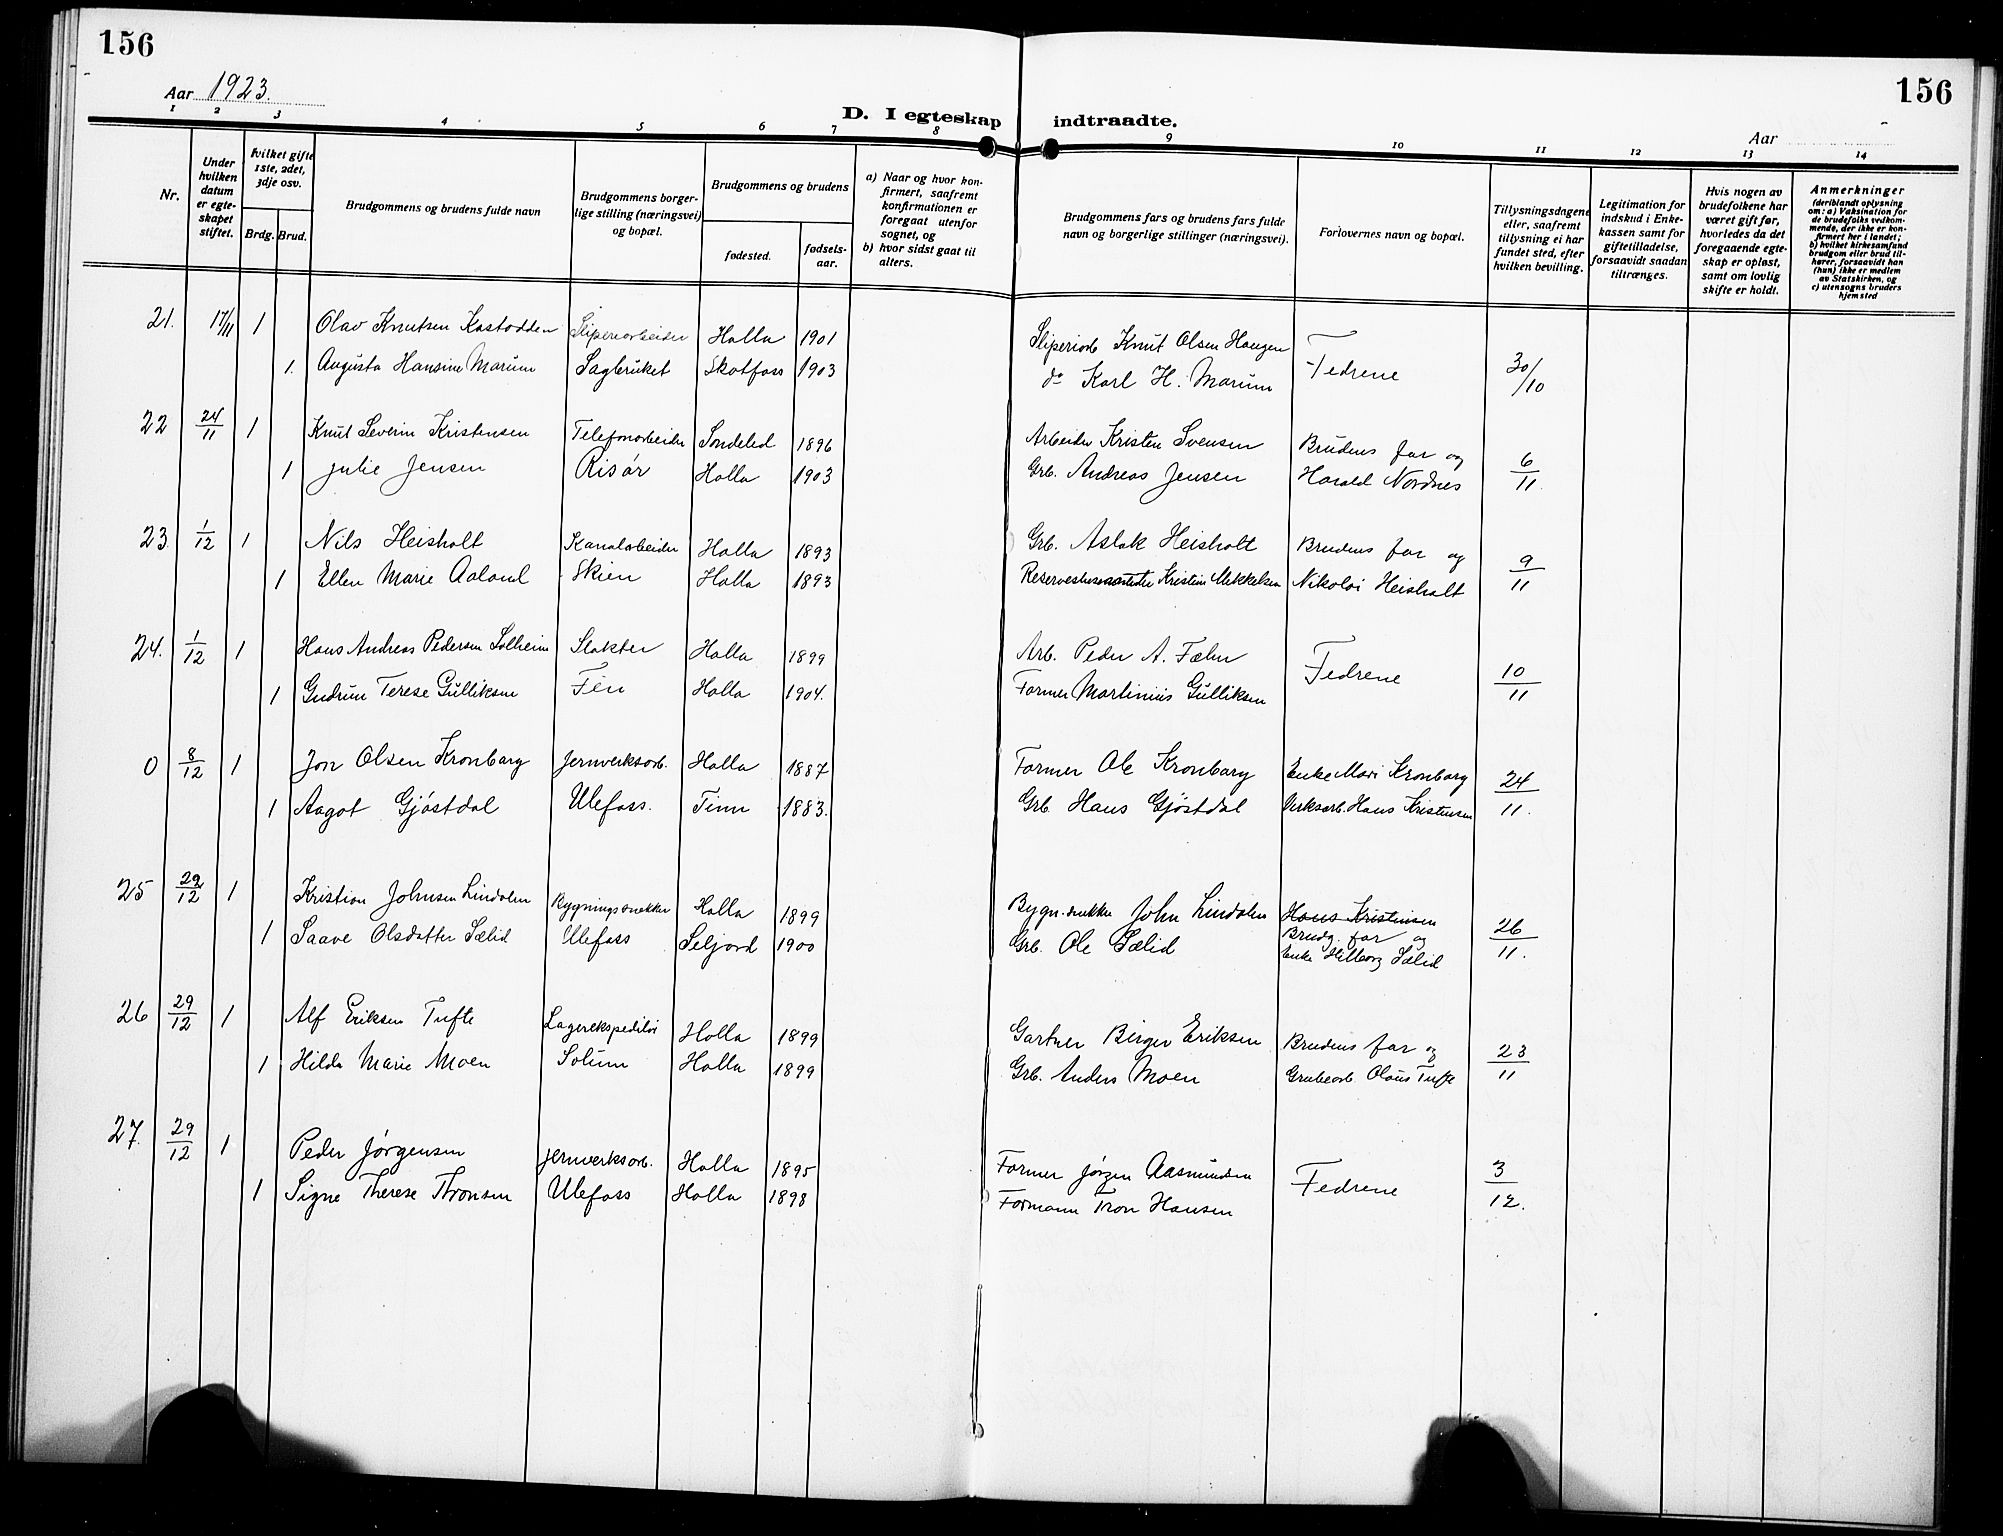 156
156
Aar 1923.
D. I egteskap indtraadte.
Aar
1 2 3 4 5 6 7 8 9 10 11 12 13 14
Nr.
Under hvilken datum er egteskapet stiftet.
hvilket gifte 1ste, 2det, 3dje osv.
Brdg. Brud.
Brudgommens og brudens fulde navn
Brudgommens borgerlige stilling (næringsvei) og bopæl.
Brudgommens og brudens
fødested.
fødselsaar.
a) Naar og hvor konfirmert, saafremt konfirmationen er foregaat utenfor sognet, og
b) hvor sidst gaat til alters.
Brudgommens fars og brudens fars fulde navn og borgerlige stillinger (næringsvei).
Forlovernes navn og bopæl.
Tillysningsdagene eller, saafremt tillysning ei har fundet sted, efter hvilken bevilling.
Legitimation for indskud i Enkekassen samt for giftetilladelse, forsaavidt saadan tiltrænges.
Hvis nogen av brudefolkene har været gift før, hvorledes da det foregaaende egteskap er opløst, samt om lovlig skifte er holdt.
Anmerkninger (deriblandt oplysning om: a) Vaksination for de brudefolks vedkommende, der ikke er konfirmert her i landet; b) hvilket kirkesamfund brudgom eller brud tilhører, forsaavidt han (hun) ikke er medlem av Statskirken, og c) utensogns bruders hjemsted
21. 17/11 1 Olav Knutsen Kastodden Sliperiarbeider Holla 1901 Sliperiarb Knut Olsen Haugen Fedrene 30/10
1. Augusta Hansine Marum Sagbruket Skotfoss 1903 do Karl H. Marum
22 24/11 1 Knut Severin Kristensen Telefonarbeider Søndeled 1896 Arbeider Kristen Svensen Brudens far og 6/11.
1 Julie Jensen Risør Holla 1903 Grb. Andreas Jensen Harald Nordnes
23. 1/12 1 Nils Heisholt Kanalarbeider Holla 1893 Grb. Aslak Heisholt Brudens far og 9/11
1 Ellen Marie Aaland Skien Holla 1893 Kristen Mikkelsen Nikolai Heisholt
24. 1/12 1 Hans Andreas Pedersen Solheim Slakter Holla 1899 Arb. Peder A. Fæhn Fedrene 10/11
1 Gudrun Terese Gulliksen Fen Holla 1904. Former Martinius Gulliksen
0 8/12 1 Jon Olsen Kronborg Jernverksarb. Holla 1887 Former Ole Kronborg Enke Mari Kronborg 24/11.
1 Aagot Gjøstdal Ulefoss. Tinn 1883. Grb. Hans Gjøstdal Verksarb. Hans Kristensen
25 29/12 1 Kristian Johnsen Lindalen Bygningssnekker Holla 1899 Bygn.snekker John Lindalen Hans Kristensen 26/11.
1 Saave Olsdatter Sælid Ulefoss Seljord 1900 Grb. Ole Sælid Brudg. far og
Enke Hilborg Sælid
26 29/12 1 Alf Eriksen Tufte Lagerekspeditør Holla 1899 Gartner Birger Eriksen Brudens far og 23/11
1 Hilda Marie Moen Solum Holla 1899 Grb. Anders Moen Grubearb. Olaus Tufte
27. 29/12 1 Peder Jørgensen Jernverksarb. Holla 1895 Former Jørgen Aasmundsen Fedrene 3/12.
1 Signe Therese Thronsen Ulefoss Holla 1898 Formann Tron Hansen